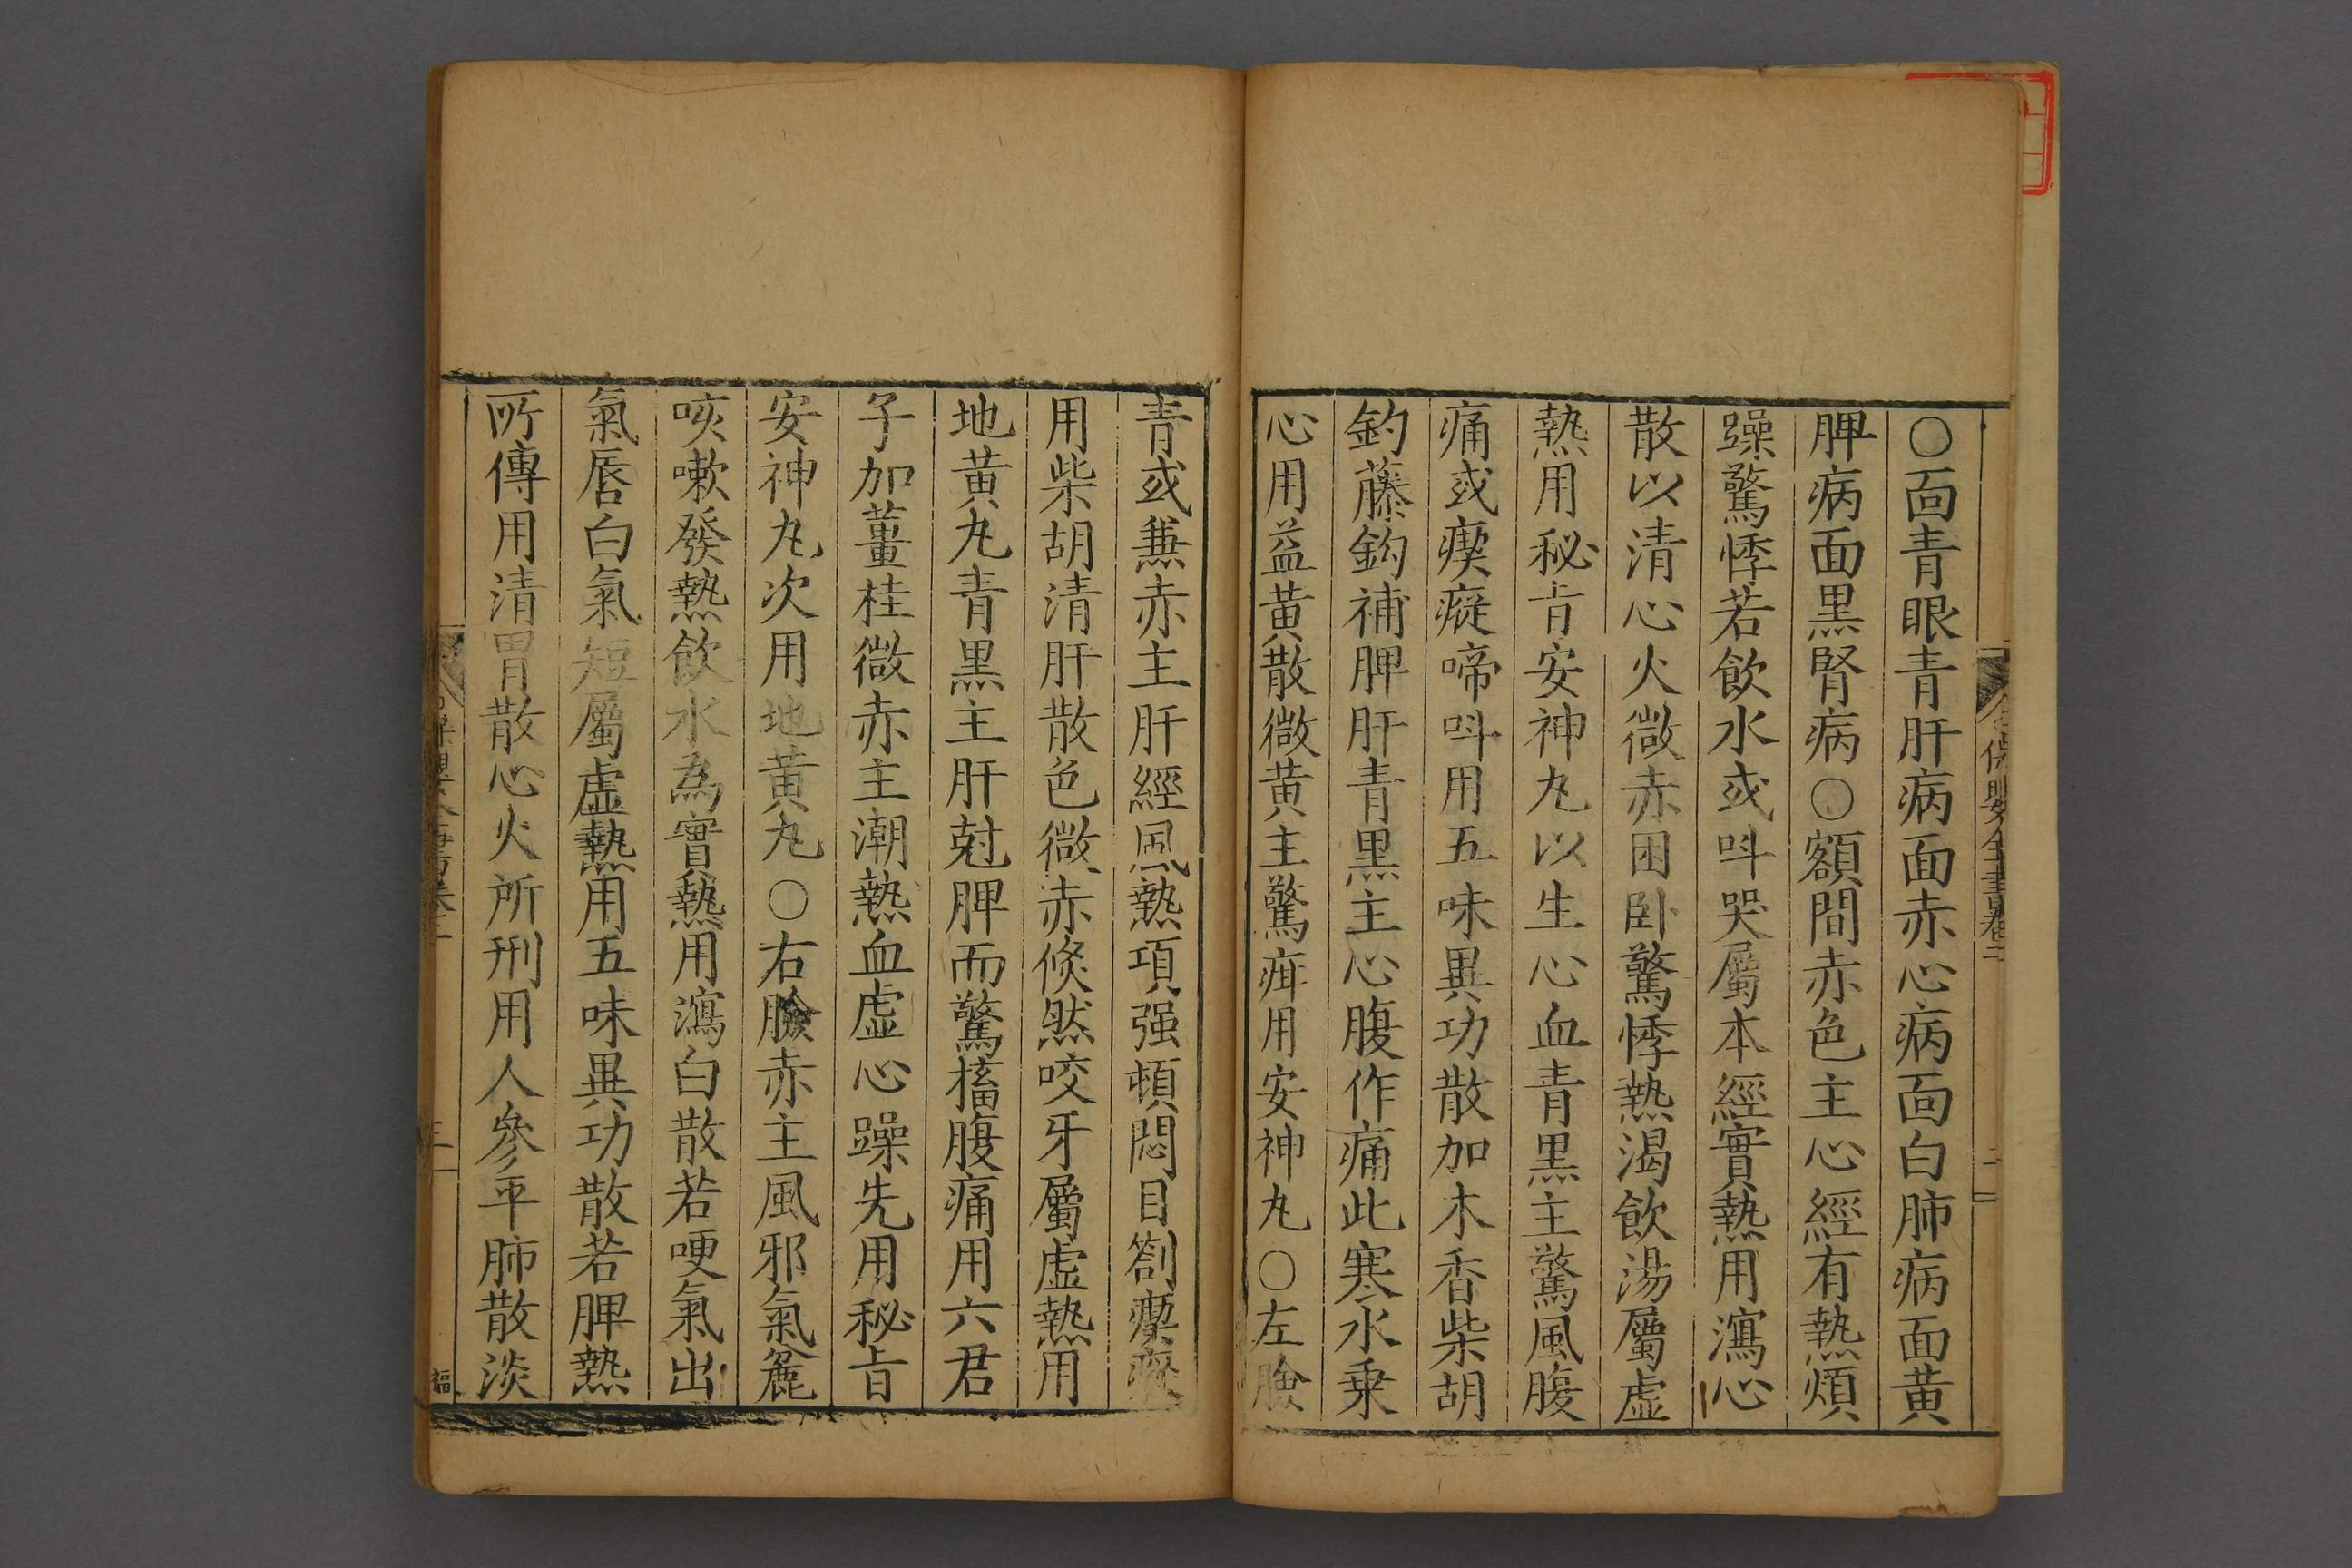 〇面青眼青肝病面赤心病面白肺病面黄
脾病面黒腎病〇額間赤色主心經有熱煩
躁驚悸若飲水或呌哭屬本經實熱用瀉心
散以清心火微赤困卧驚悸熱渴飲湯屬虚
熱用秘旨安神丸以生心血青黒主驚風腹
痛或瘈瘲啼呌用五味異功散加木香柴胡
釣藤鈎補脾肝青黒主心腹作痛此寒水乗
心用益黄散微黄主驚疳用安神丸〇左臉
青或兼赤主肝經風熱項强頓悶目劄瘈瘲
用柴胡清肝散色微赤倐然咬牙屬虚熱用
地黄丸青黒主肝尅脾而驚搐腹痛用六君
子加薑桂微赤主潮熱血虚心躁先用秘旨
安神丸次用地黄丸〇右臉赤主風邪氣麄
咳嗽發熱飲水為實熱用瀉白散若哽氣出
氣唇白氣短屬虚熱用五味異功散若脾熱
所傳用清胃散心火所刑用人參平肺散淡
保嬰全書卷二
二
福